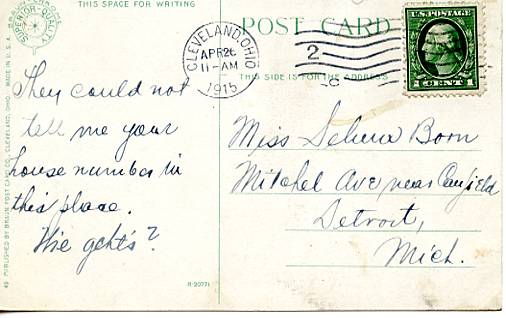 THIS SPACE FOR WRITING
POST CARD
SUPERIOR-QUALITY
MADE IN U.S.A.
CLEVELAND, OHIO
APR 26
11-AM
1915
2
U.S. POSTAGE
1 CENT 1
THIS SIDE IS FOR THE ADDRESS
They could not
tell me your
house number in
this place.
Wie geht's?
Miss Selma Born
Mitchel Ave near Canfield
Detroit,
Mich.
49 PUBLISHED BY BRAUN POST CARD CO., CLEVELAND, OHIO
R-20771